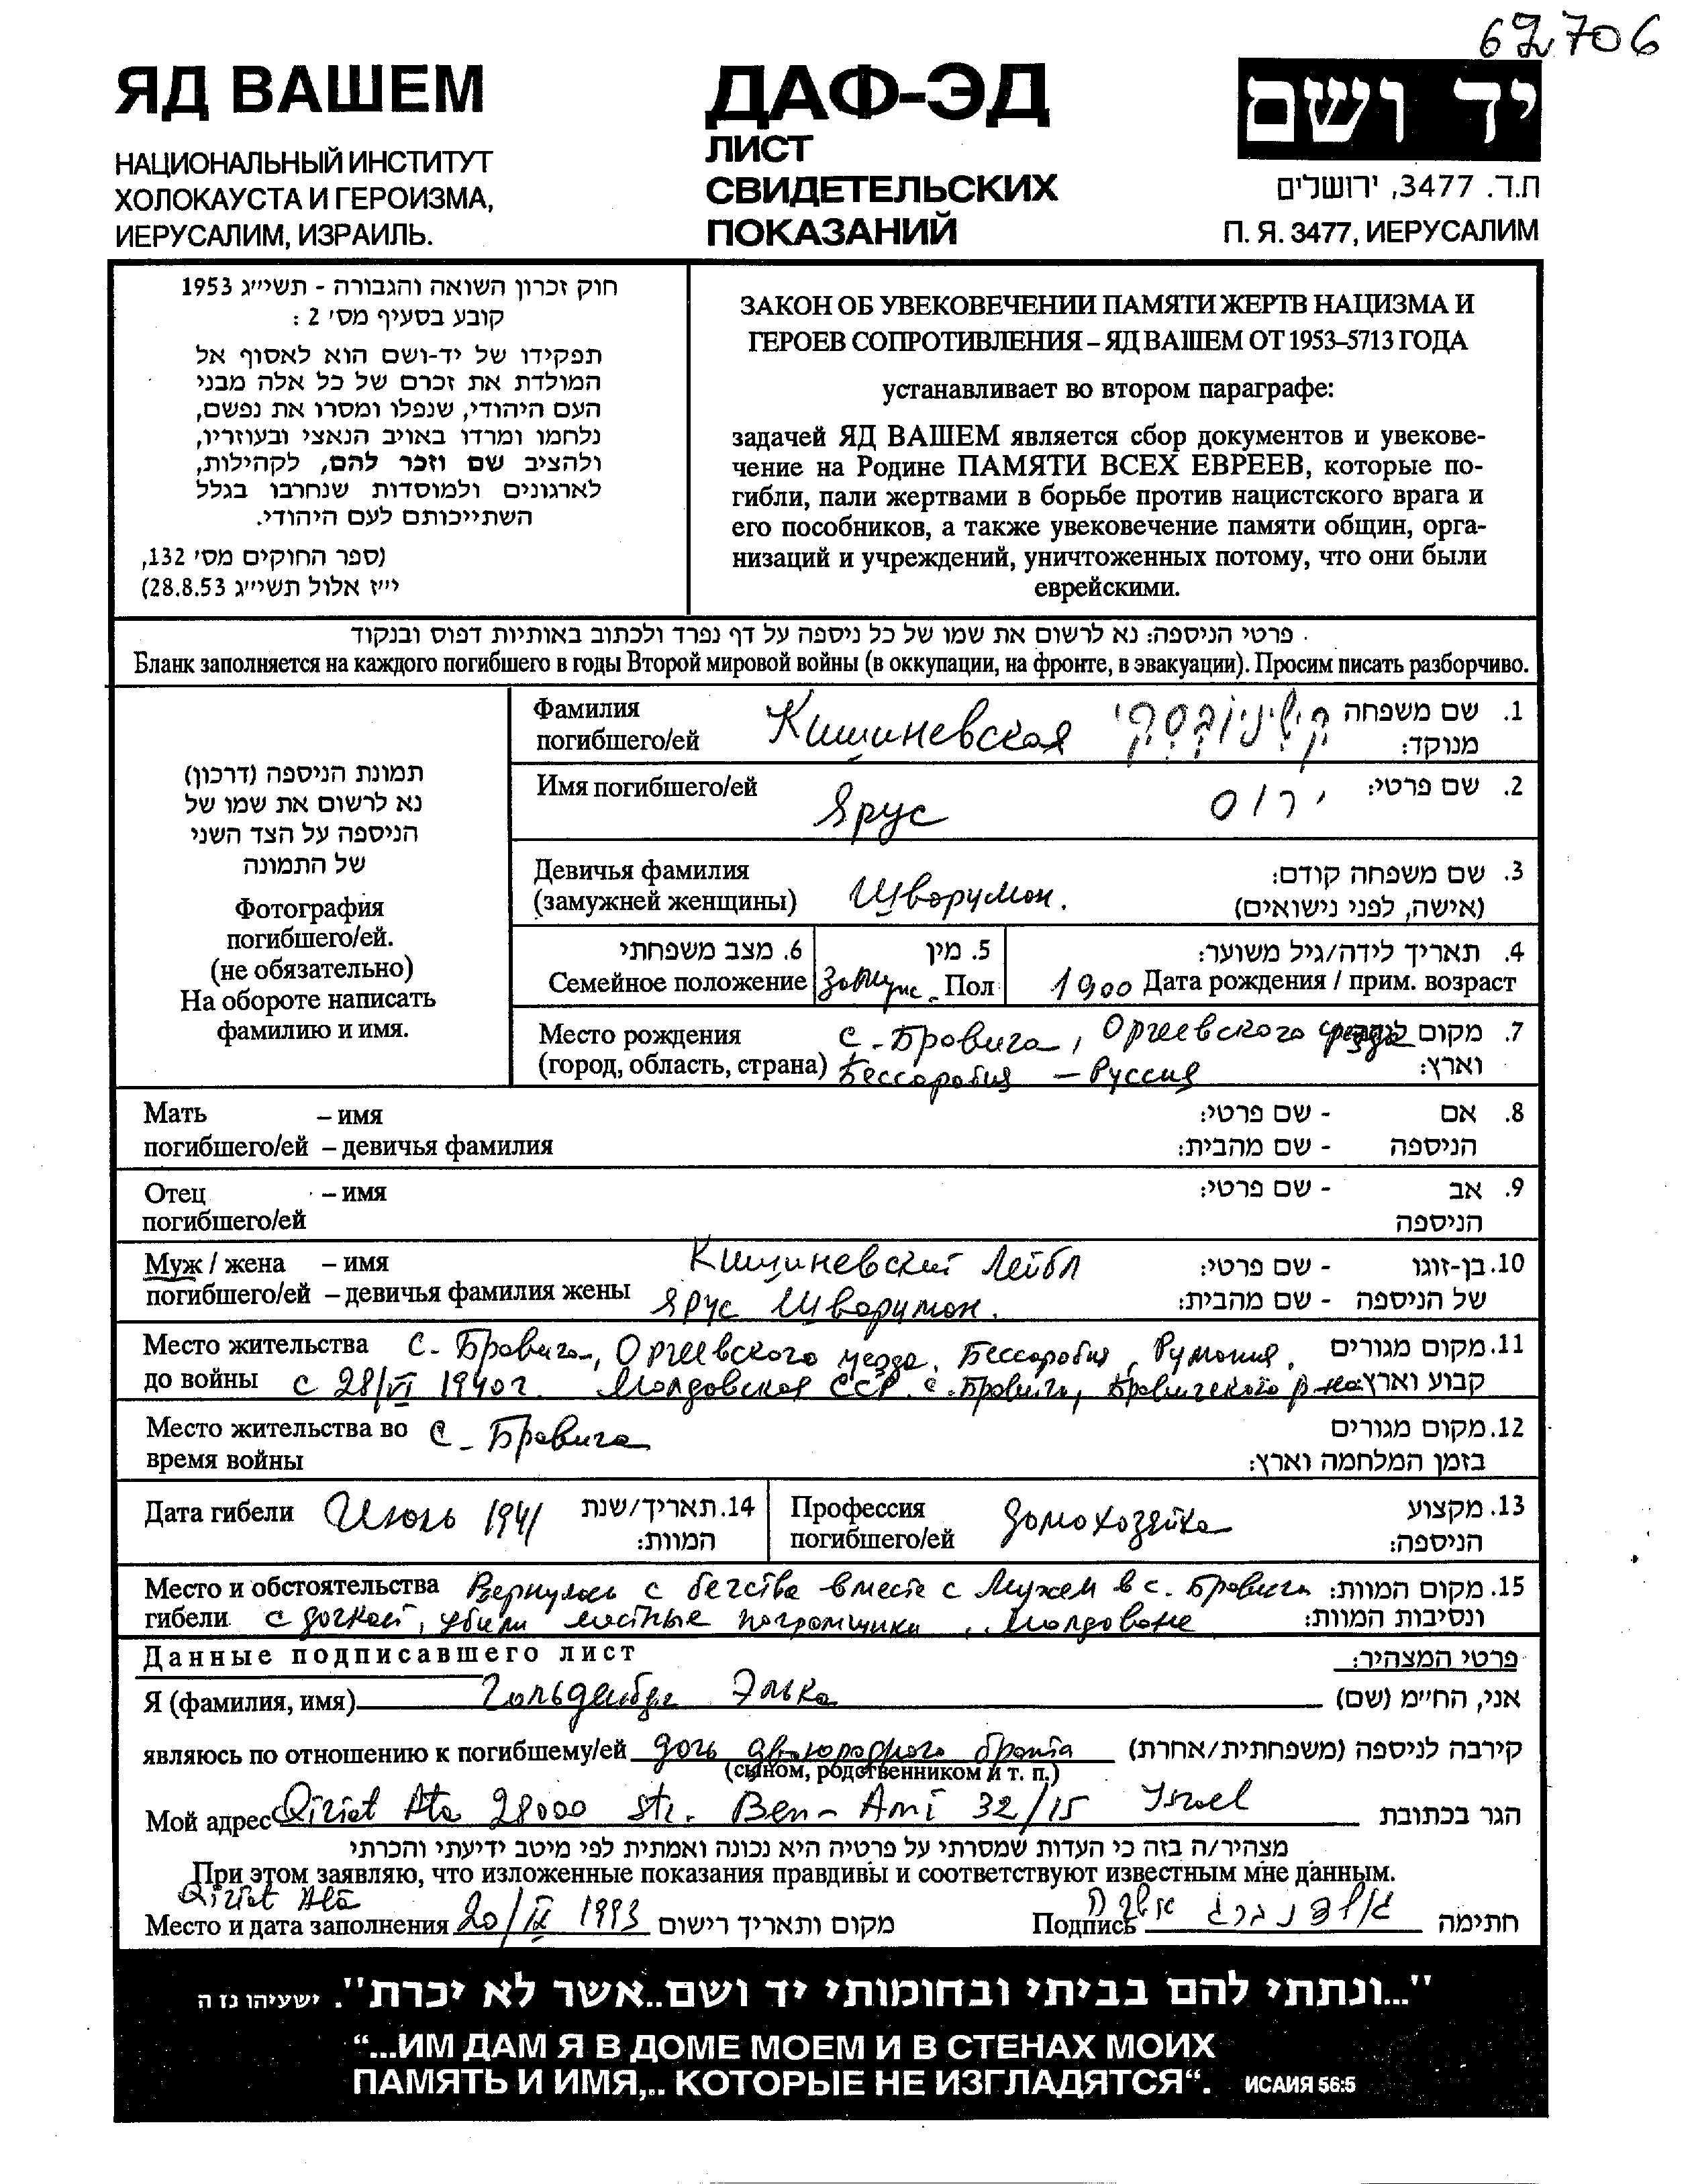 62706
ЯД ВАШЕМ
НАЦИОНАЛЬНЫЙ ИНСТИТУТ
ХОЛОКАУСТА И ГЕРОИЗМА,
ИЕРУСАЛИМ, ИЗРАИЛЬ.
ДАФ-ЭД
ЛИСТ
СВИДЕТЕЛЬСКИХ
ПОКАЗАНИЙ
יד ושם
ת.ד. 3477, ירושלים
П. Я. 3477, ИЕРУСАЛИМ
חוק זכרון השואה והגבורה - תשי״ג 1953
קובע בסעיף מס׳ 2 :
תפקידו של יד-ושם הוא לאסוף אל
המולדת את זכרם של כל אלה מבני
העם היהודי, שנפלו ומסרו את נפשם,
נלחמו ומרדו באויב הנאצי ובעוזריו,
ולהציב שם וזכר להם, לקהילות,
לארגונים ולמוסדות שנחרבו בגלל
השתייכותם לעם היהודי.
(ספר החוקים מס׳ 132,
י״ז אלול תשי״ג 28.8.53)
ЗАКОН ОБ УВЕКОВЕЧЕНИИ ПАМЯТИ ЖЕРТВ НАЦИЗМА И
ГЕРОЕВ СОПРОТИВЛЕНИЯ – ЯД ВАШЕМ ОТ 1953–5713 ГОДА
устанавливает во втором параграфе:
задачей ЯД ВАШЕМ является сбор документов и увекове-
чение на Родине ПАМЯТИ ВСЕХ ЕВРЕЕВ, которые по-
гибли, пали жертвами в борьбе против нацистского врага и
его пособников, а также увековечение памяти общин, орга-
низаций и учреждений, уничтоженных потому, что они были
еврейскими.
פרטי הניספה: נא לרשום את שמו של כל ניספה על דף נפרד ולכתוב באותיות דפוס ובנקוד
Бланк заполняется на каждого погибшего в годы Второй мировой войны (в оккупации, на фронте, в эвакуации). Просим писать разборчиво.
תמונת הניספה (דרכון)
נא לרשום את שמו של
הניספה על הצד השני
של התמונה
Фотография
погибшего/ей.
(не обязательно)
На обороте написать
фамилию и имя.
Фамилия Кишиневская קישינובסקי 1. שם משפחה
погибшего/ей מנוקד:
Имя погибшего/ей Ярус ירוס 2. שם פרטי:
Девичья фамилия Шварумон. 3. שם משפחה קודם:
(замужней женщины) (אישה, לפני נישואים)
6. מצב משפחתי 5. מין 4. תאריך לידה/גיל משוער:
Семейное положение Замуж. Пол 1900 Дата рождения / прим. возраст
Место рождения с. Бравича, Оргеевского уезда 7. מקום לידה
(город, область, страна) Бессарабия – Руссия וארץ:
Мать – имя 8. אם - שם פרטי:
погибшего/ей – девичья фамилия הניספה - שם מהבית:
Отец – имя 9. אב - שם פרטי:
погибшего/ей הניספה
Муж / жена – имя Кишиневский Лейбл 10. בן-זוגו - שם פרטי:
погибшего/ей – девичья фамилия жены Ярус Шварумон. של הניספה - שם מהבית:
Место жительства с. Бравича, Оргеевского уезда, Бессарабия, Румыния, 11. מקום מגורים
до войны с 28/VI 1940 г. Молдовская ССР с. Бравича, Бравичского р-на קבוע וארץ
Место жительства во с. Бравича 12. מקום מגורים
время войны בזמן המלחמה וארץ:
Дата гибели Июль 1941 14. תאריך/שנת Профессия домохозяйка 13. מקצוע
המוות: погибшего/ей הניספה:
Место и обстоятельства Вернулась с бегства вместе с мужем в с. Бравича 15. מקום המוות:
гибели с дочкой, убили местные погромщики, молдоване ונסיבות המוות:
Данные подписавшего лист פרטי המצהיר:
Я (фамилия, имя) Гольденберг Элька אני, החי״מ (שם)
являюсь по отношению к погибшему/ей дочь двоюродного брата קירבה לניספה (משפחתית/אחרת)
(сыном, родственником и т. п.)
Мой адрес Qiriat Ata 28000 str. Ben-Ami 32/15 Israel הגר בכתובת
מצהיר/ה בזה כי העדות שמסרתי על פרטיה היא נכונה ואמתית לפי מיטב ידיעתי והכרתי
При этом заявляю, что изложенные показания правдивы и соответствуют известным мне данным.
Qiriat Ata
Место и дата заполнения 20/IX 1993 מקום ותאריך רישום Подпись גולדנברג אלקה חתימה
"...ונתתי להם בביתי ובחומותי יד ושם..אשר לא יכרת". ישעיהו נז ה
“...ИМ ДАМ Я В ДОМЕ МОЕМ И В СТЕНАХ МОИХ
ПАМЯТЬ И ИМЯ,.. КОТОРЫЕ НЕ ИЗГЛАДЯТСЯ“. ИСАИЯ 56:5